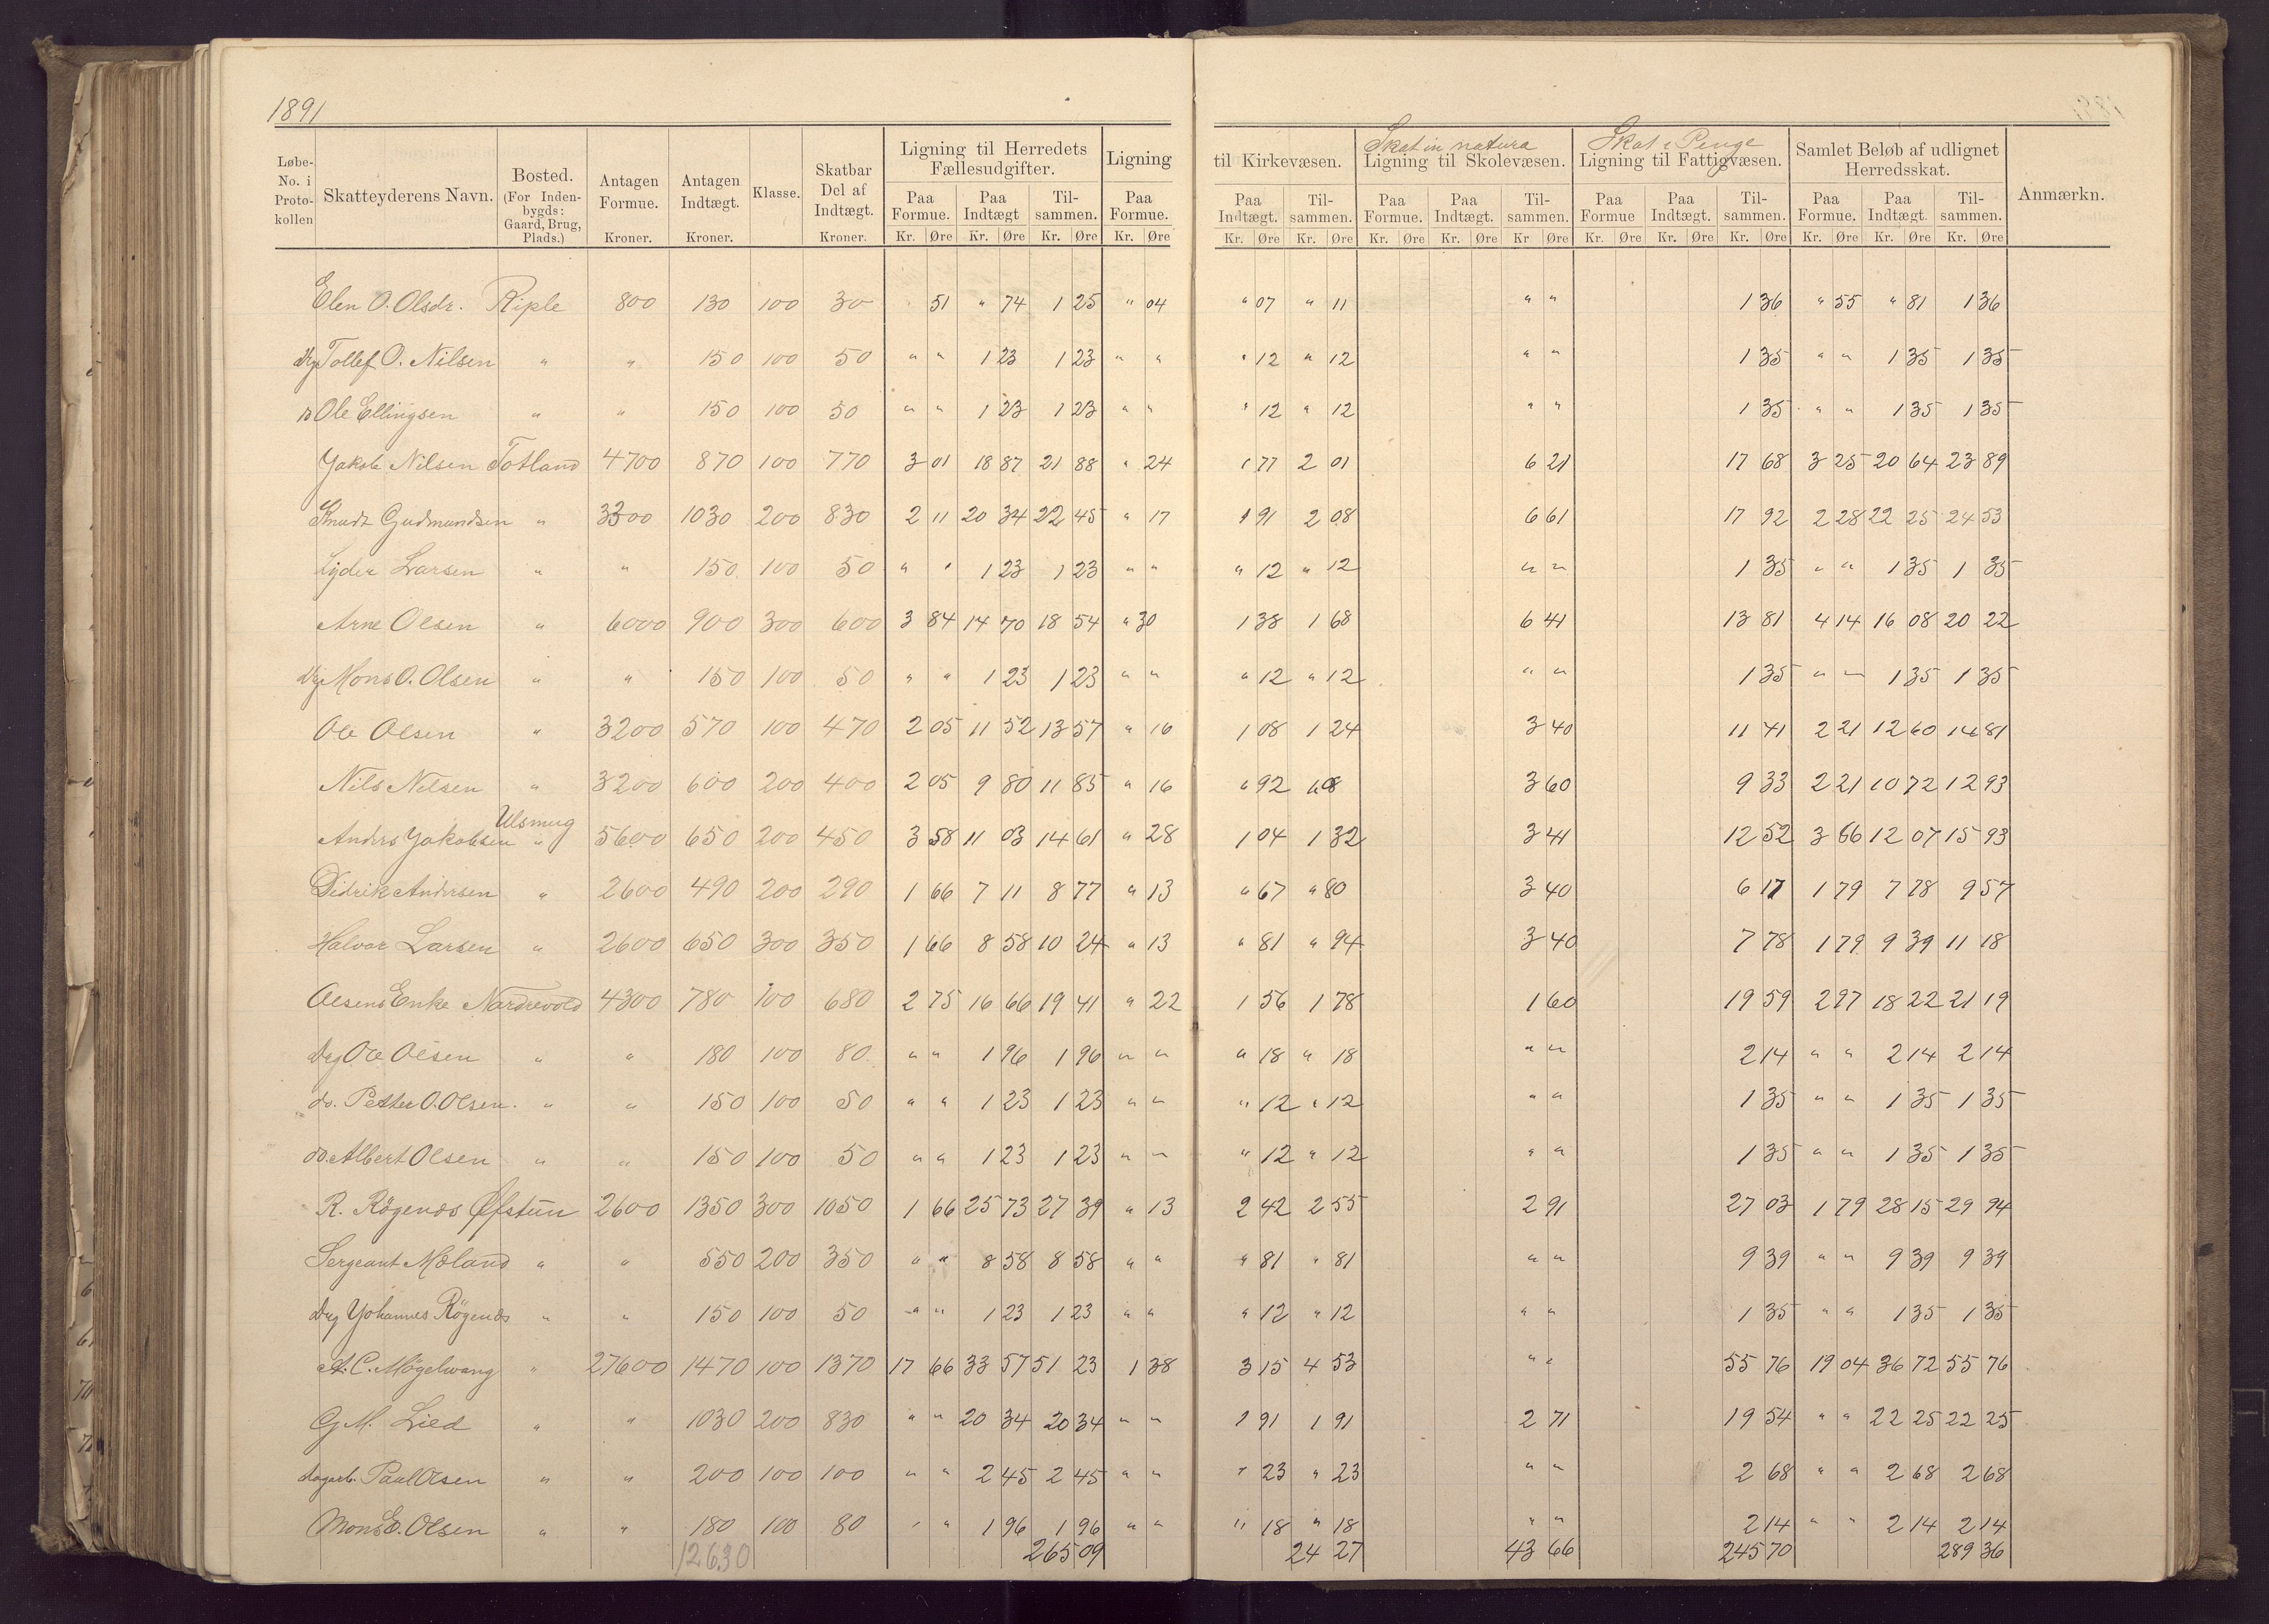 1891
Løbe-No. i Proto-kollen | Skatteyderens Navn. | Bosted. (For Inden-bygds: Gaard, Brug, Plads.) | Antagen Formue. Kroner. | Antagen Indtægt. Kroner. | Klasse. | Skatbar Del af Indtægt. Kroner. | Ligning til Herredets Fællesudgifter. Paa Formue. Kr. Øre | Paa Indtægt Kr. Øre | Til-sammen. Kr. Øre | Ligning Paa Formue. Kr. Øre | til Kirkevæsen. Paa Indtægt. Kr. Øre | Til-sammen. Kr. Øre | Skat in natura Ligning til Skolevæsen. Paa Formue. Kr. Øre | Paa Indtægt. Kr. Øre | Til-sammen. Kr Øre | Skat i Penge Ligning til Fattigvæsen. Paa Formue Kr. Øre | Paa Indtægt. Kr. Øre | Til-sammen. Kr. Øre | Samlet Beløb af udlignet Herredsskat. Paa Formue. Kr. Øre | Paa Indtægt. Kr. Øre | Til-sammen. Kr. Øre | Anmærkn.
Elen O. Olsdr. Riple 800 130 100 30 " 51 " 74 1 25 " 04 " 07 " 11 " " 1 36 " 55 " 81 1 36
Dg Tollef O. Nilsen " " 150 100 50 " " 1 23 1 23 " " " 12 " 12 " " 1 35 " " 1 35 1 35
D Ole Ellingsen " " 150 100 50 " " 1 23 1 23 " " " 12 " 12 " " 1 35 " " 1 35 1 35
Jakob Nilsen Totland 4700 870 100 770 3 01 18 87 21 88 " 24 1 77 2 01 6 21 17 68 3 25 20 64 23 89
Knudt Gudmundsen " 3300 1030 200 830 2 11 20 34 22 45 " 17 1 91 2 08 6 61 17 92 2 28 22 25 24 53
Lyder Larsen " " 150 100 50 " " 1 23 1 23 " " " 12 " 12 " " 1 35 " " 1 35 1 35
Arne Olsen " 6000 900 300 600 3 84 14 70 18 54 " 30 1 38 1 68 6 41 13 81 4 14 16 08 20 22
Dg Mons O. Olsen " " 150 100 50 " " 1 23 1 23 " " " 12 " 12 " " 1 35 " " 1 35 1 35
Ole Olsen " 3200 570 100 470 2 05 11 52 13 57 " 16 1 08 1 24 3 40 11 41 2 21 12 60 14 81
Nils Nilsen " 3200 600 200 400 2 05 9 80 11 85 " 16 " 92 1 08 3 60 9 33 2 21 10 72 12 93
Ulsmug
Anders Jakobsen " 5600 650 200 450 3 58 11 03 14 61 " 28 1 04 1 32 3 41 12 52 3 86 12 07 15 93
Didrik Andersen " 2600 490 200 290 1 66 7 11 8 77 " 13 " 67 " 80 3 40 6 17 1 79 7 78 9 57
Halvor Larsen " 2600 650 300 350 1 66 8 58 10 24 " 13 " 81 " 94 3 40 7 78 1 79 9 39 11 18
Olsens Enke Nordrevold 4300 780 100 680 2 75 16 66 19 41 " 22 1 56 1 78 1 60 19 59 2 97 18 22 21 19
Dg Ole Olsen " " 180 100 80 " " 1 96 1 96 " " " 18 " 18 " " 2 14 " " 2 14 2 14
do. Petter O. Olsen. " " 150 100 50 " " 1 23 1 23 " " " 12 " 12 " " 1 35 " " 1 35 1 35
do. Albert Olsen " " 150 100 50 " " 1 23 1 23 " " " 12 " 12 " " 1 35 " " 1 35 1 35
R. Rögenæs Øfstun 2600 1350 300 1050 1 66 25 73 27 39 " 13 2 42 2 55 2 91 27 03 1 79 28 15 29 94
Sergeant Mæland " " 550 200 350 " " 8 58 8 58 " " " 81 " 81 " " 9 39 " " 9 39 9 39
Dg Johannes Rögenæs " " 150 100 50 " " 1 23 1 23 " " " 12 " 12 " " 1 35 " " 1 35 1 35
A. C. Mögelvang " 27600 1470 100 1370 17 66 33 57 51 23 1 38 3 15 4 53 " " 55 76 19 04 36 72 55 76
G. M. Lied " " 1030 200 830 " " 20 34 20 34 " " 1 91 1 91 2 71 19 54 " " 22 25 22 25
dagarb. Paul Olsen " " 200 100 100 " " 2 45 2 45 " " " 23 " 23 " " 2 68 " " 2 68 2 68
Mons E. Olsen " " 180 100 80 " " 1 96 1 96 " " " 18 " 18 " " 2 14 " " 2 14 2 14
12630 265 09 24 27 43 66 245 70 289 36